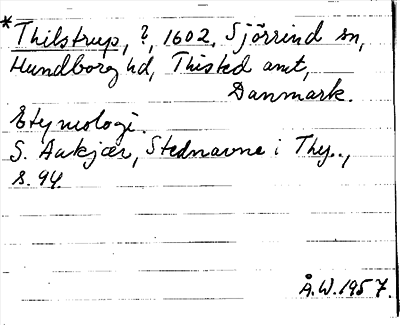 *Thilstrup, ?, 1602, Sjörrind sn,
Hundborg hd, Thisted amt,
Danmark.
Etymologi.
S. Aakjær, Stednavne i Thy..,
s. 94.
Å.W. 1957.